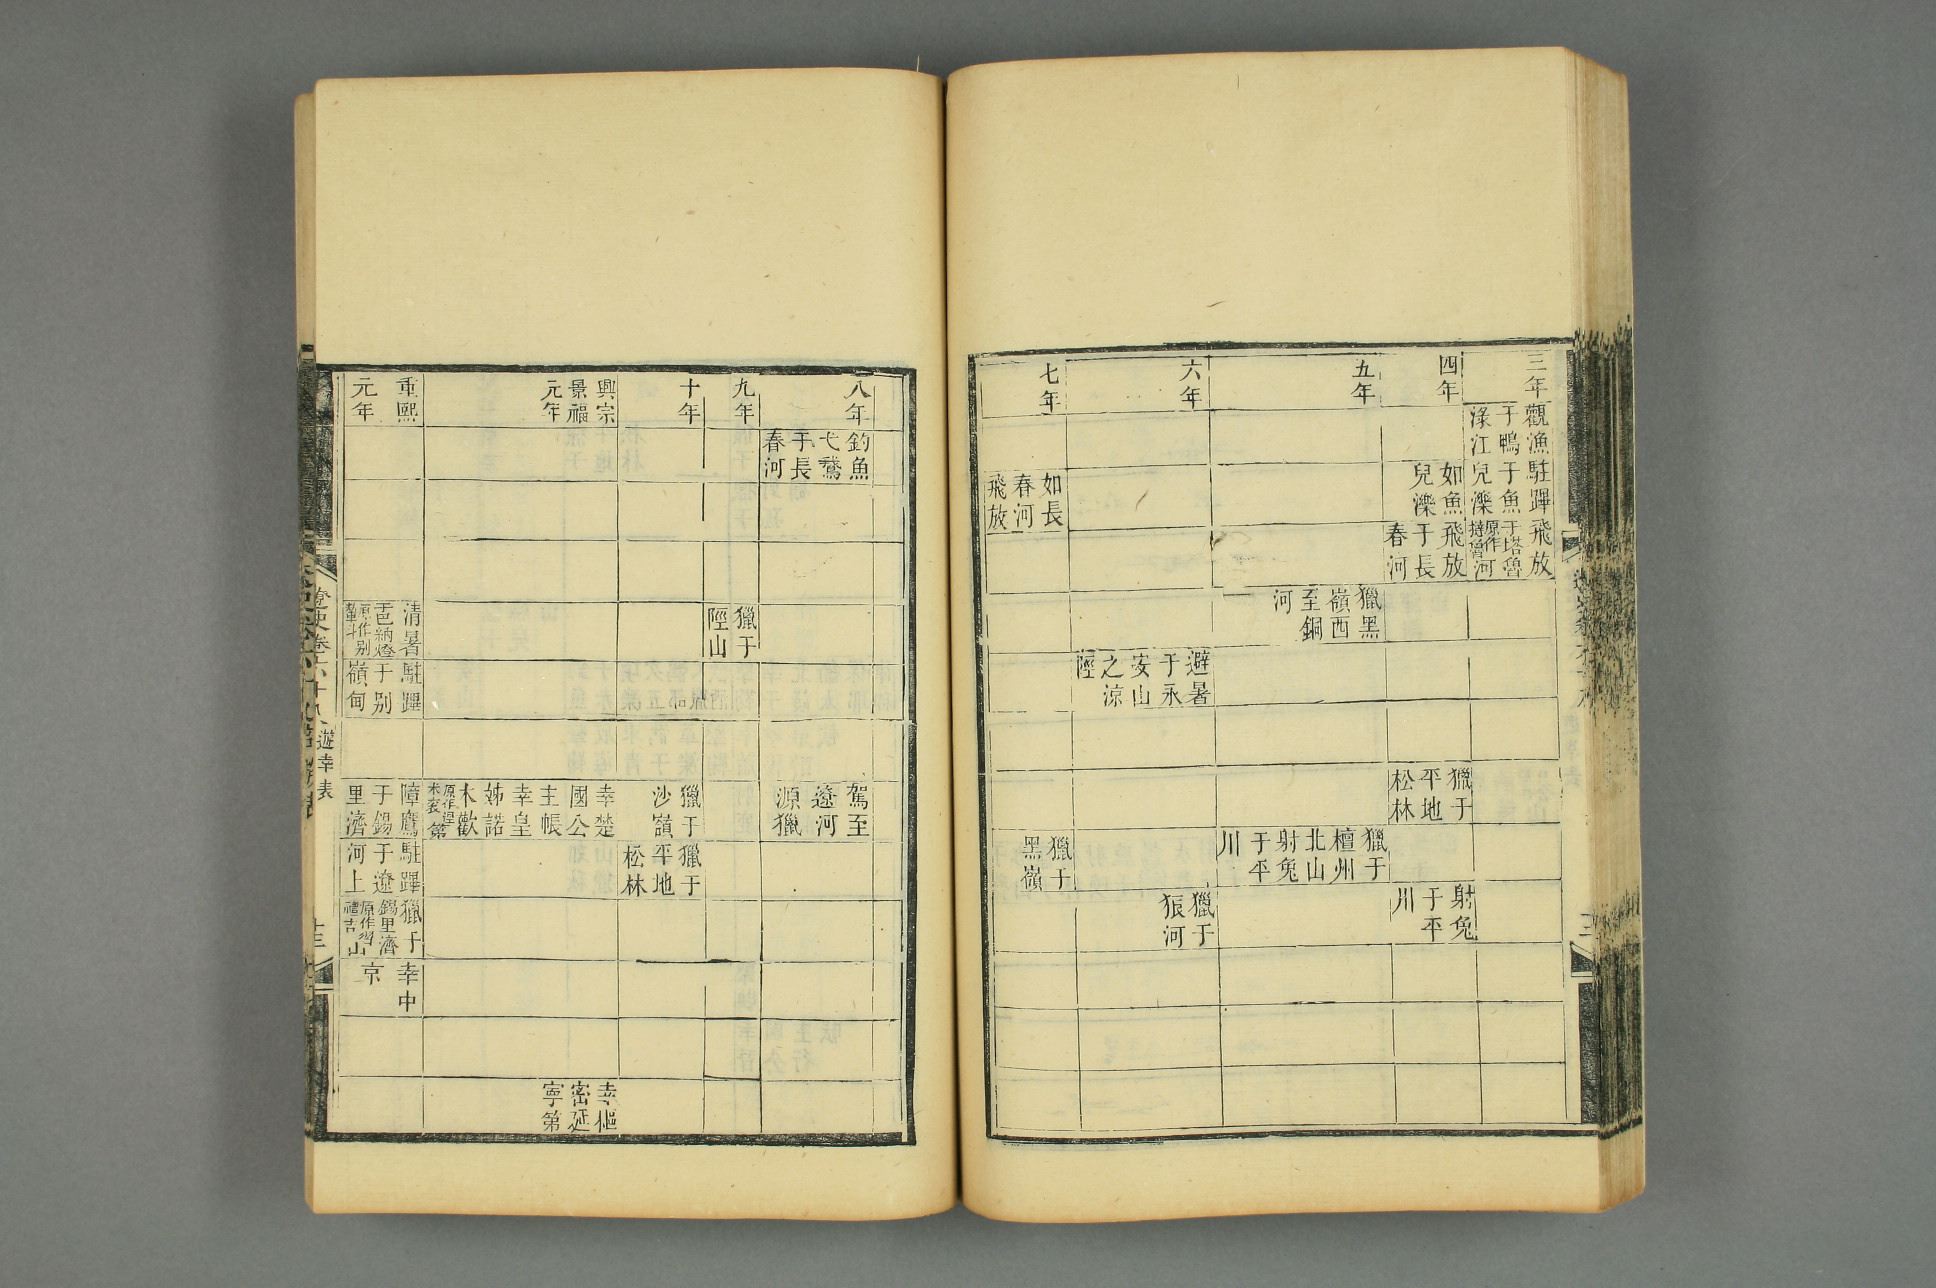 三年
觀漁
于鴨
淥江
駐蹕
于魚
兒濼
飛放
于塔魯
原作
撻魯河
四年
如魚
兒濼
飛放
于長
春河
獵于
平地
松林
射兔
于平
川
五年
獵黑
嶺西
至銅
河
獵于
檀州
北山
射兔
于平
川
六年
避暑
于永
安山
之涼
陘
獵于
狠河
七年
如長
春河
飛放
獵于
黑嶺
八年
釣魚
弋鵞
于長
春河
駕至
遼河
源獵
九年
獵于
陘山
十年
獵于
沙嶺
獵于
平地
松林
興宗
景福
元年
幸楚
國公
主帳
幸皇
姊諾
木歡
第
幸樞
密延
寧第
重熙
元年
清暑
于巴納燈
原作别
輦斗
駐蹕
于别
嶺甸
障鷹
于錫
里濟
駐蹕
于遼
河上
獵于
錫里濟
原作習
禮吉
山
幸中
京
遼史卷六十八
遊幸表
十三